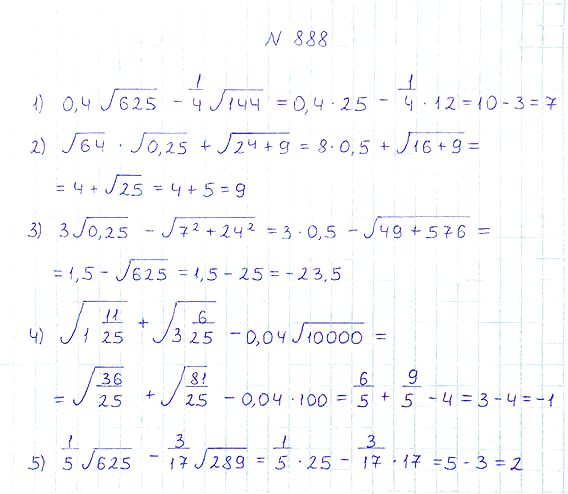 N 888
1) 0,4 √625 − 1/4 √144 = 0,4 · 25 − 1/4 · 12 = 10 − 3 = 7
2) √64 · √0,25 + √(2⁴ + 9) = 8 · 0,5 + √(16 + 9) =
= 4 + √25 = 4 + 5 = 9
3) 3√0,25 − √(7² + 24²) = 3 · 0,5 − √(49 + 576) =
= 1,5 − √625 = 1,5 − 25 = −23,5
4) √(1 11/25) + √(3 6/25) − 0,04 √10000 =
= √(36/25) + √(81/25) − 0,04 · 100 = 6/5 + 9/5 − 4 = 3 − 4 = −1
5) 1/5 √625 − 3/17 √289 = 1/5 · 25 − 3/17 · 17 = 5 − 3 = 2